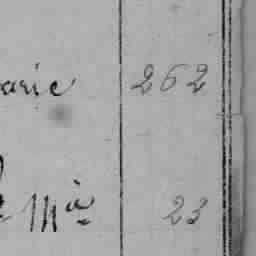 arie 262
Mia 23